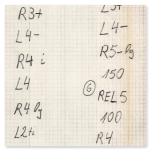 R3+
L4-
R4 i
L4
R4 lg
L2+
L3+
L4-
R5-lg
150
6 REL5
100
R4